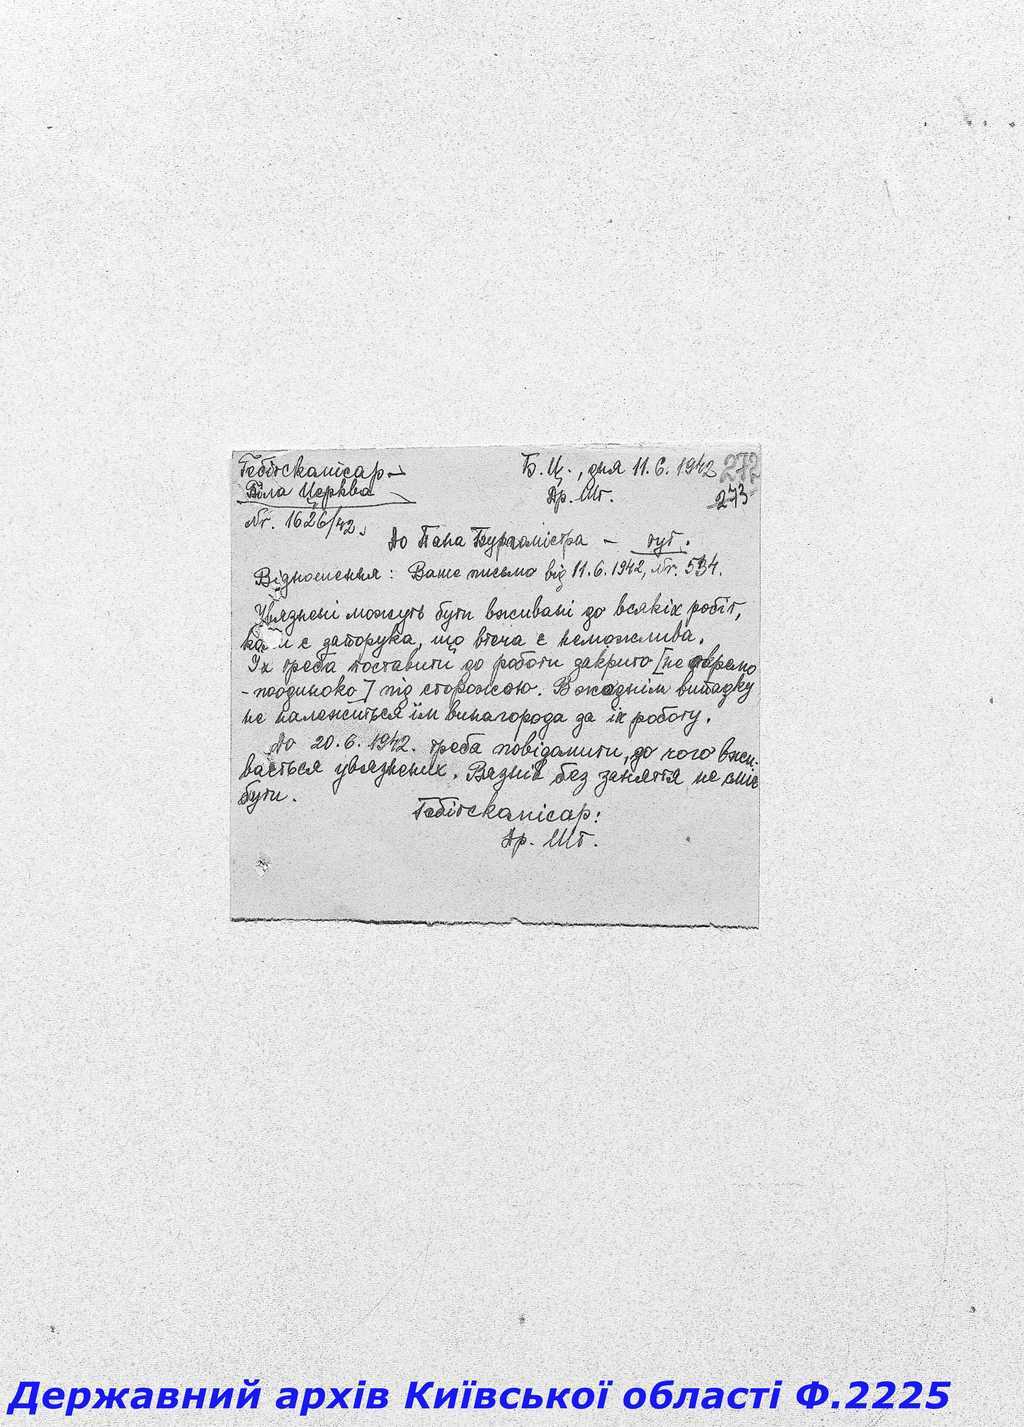 Гебітскамісар
Б. Ц., дня 11.6.1942 272
Біла Церква
Др. Шт. 273
Nr. 1626/42.
До Пана Бургомістра – тут.
Відношення: Ваше письмо від 11.6.1942, Nr. 534.
Увязнені можуть бути вживані до всякіх робіт,
є запорука, що втеча є неможлива.
Їх треба поставити до роботи закрито [не
-поодиноко] під сторожою. В жаднім випадку
не належиться їм винагорода за їх роботу.
До 20.6.1942. треба повідомити, до чого вжи-
вається увязнених. Вязнів без заняття не сміє
бути.
Гебітскамісар:
Др. Шт.
Державний архів Київської області Ф.2225